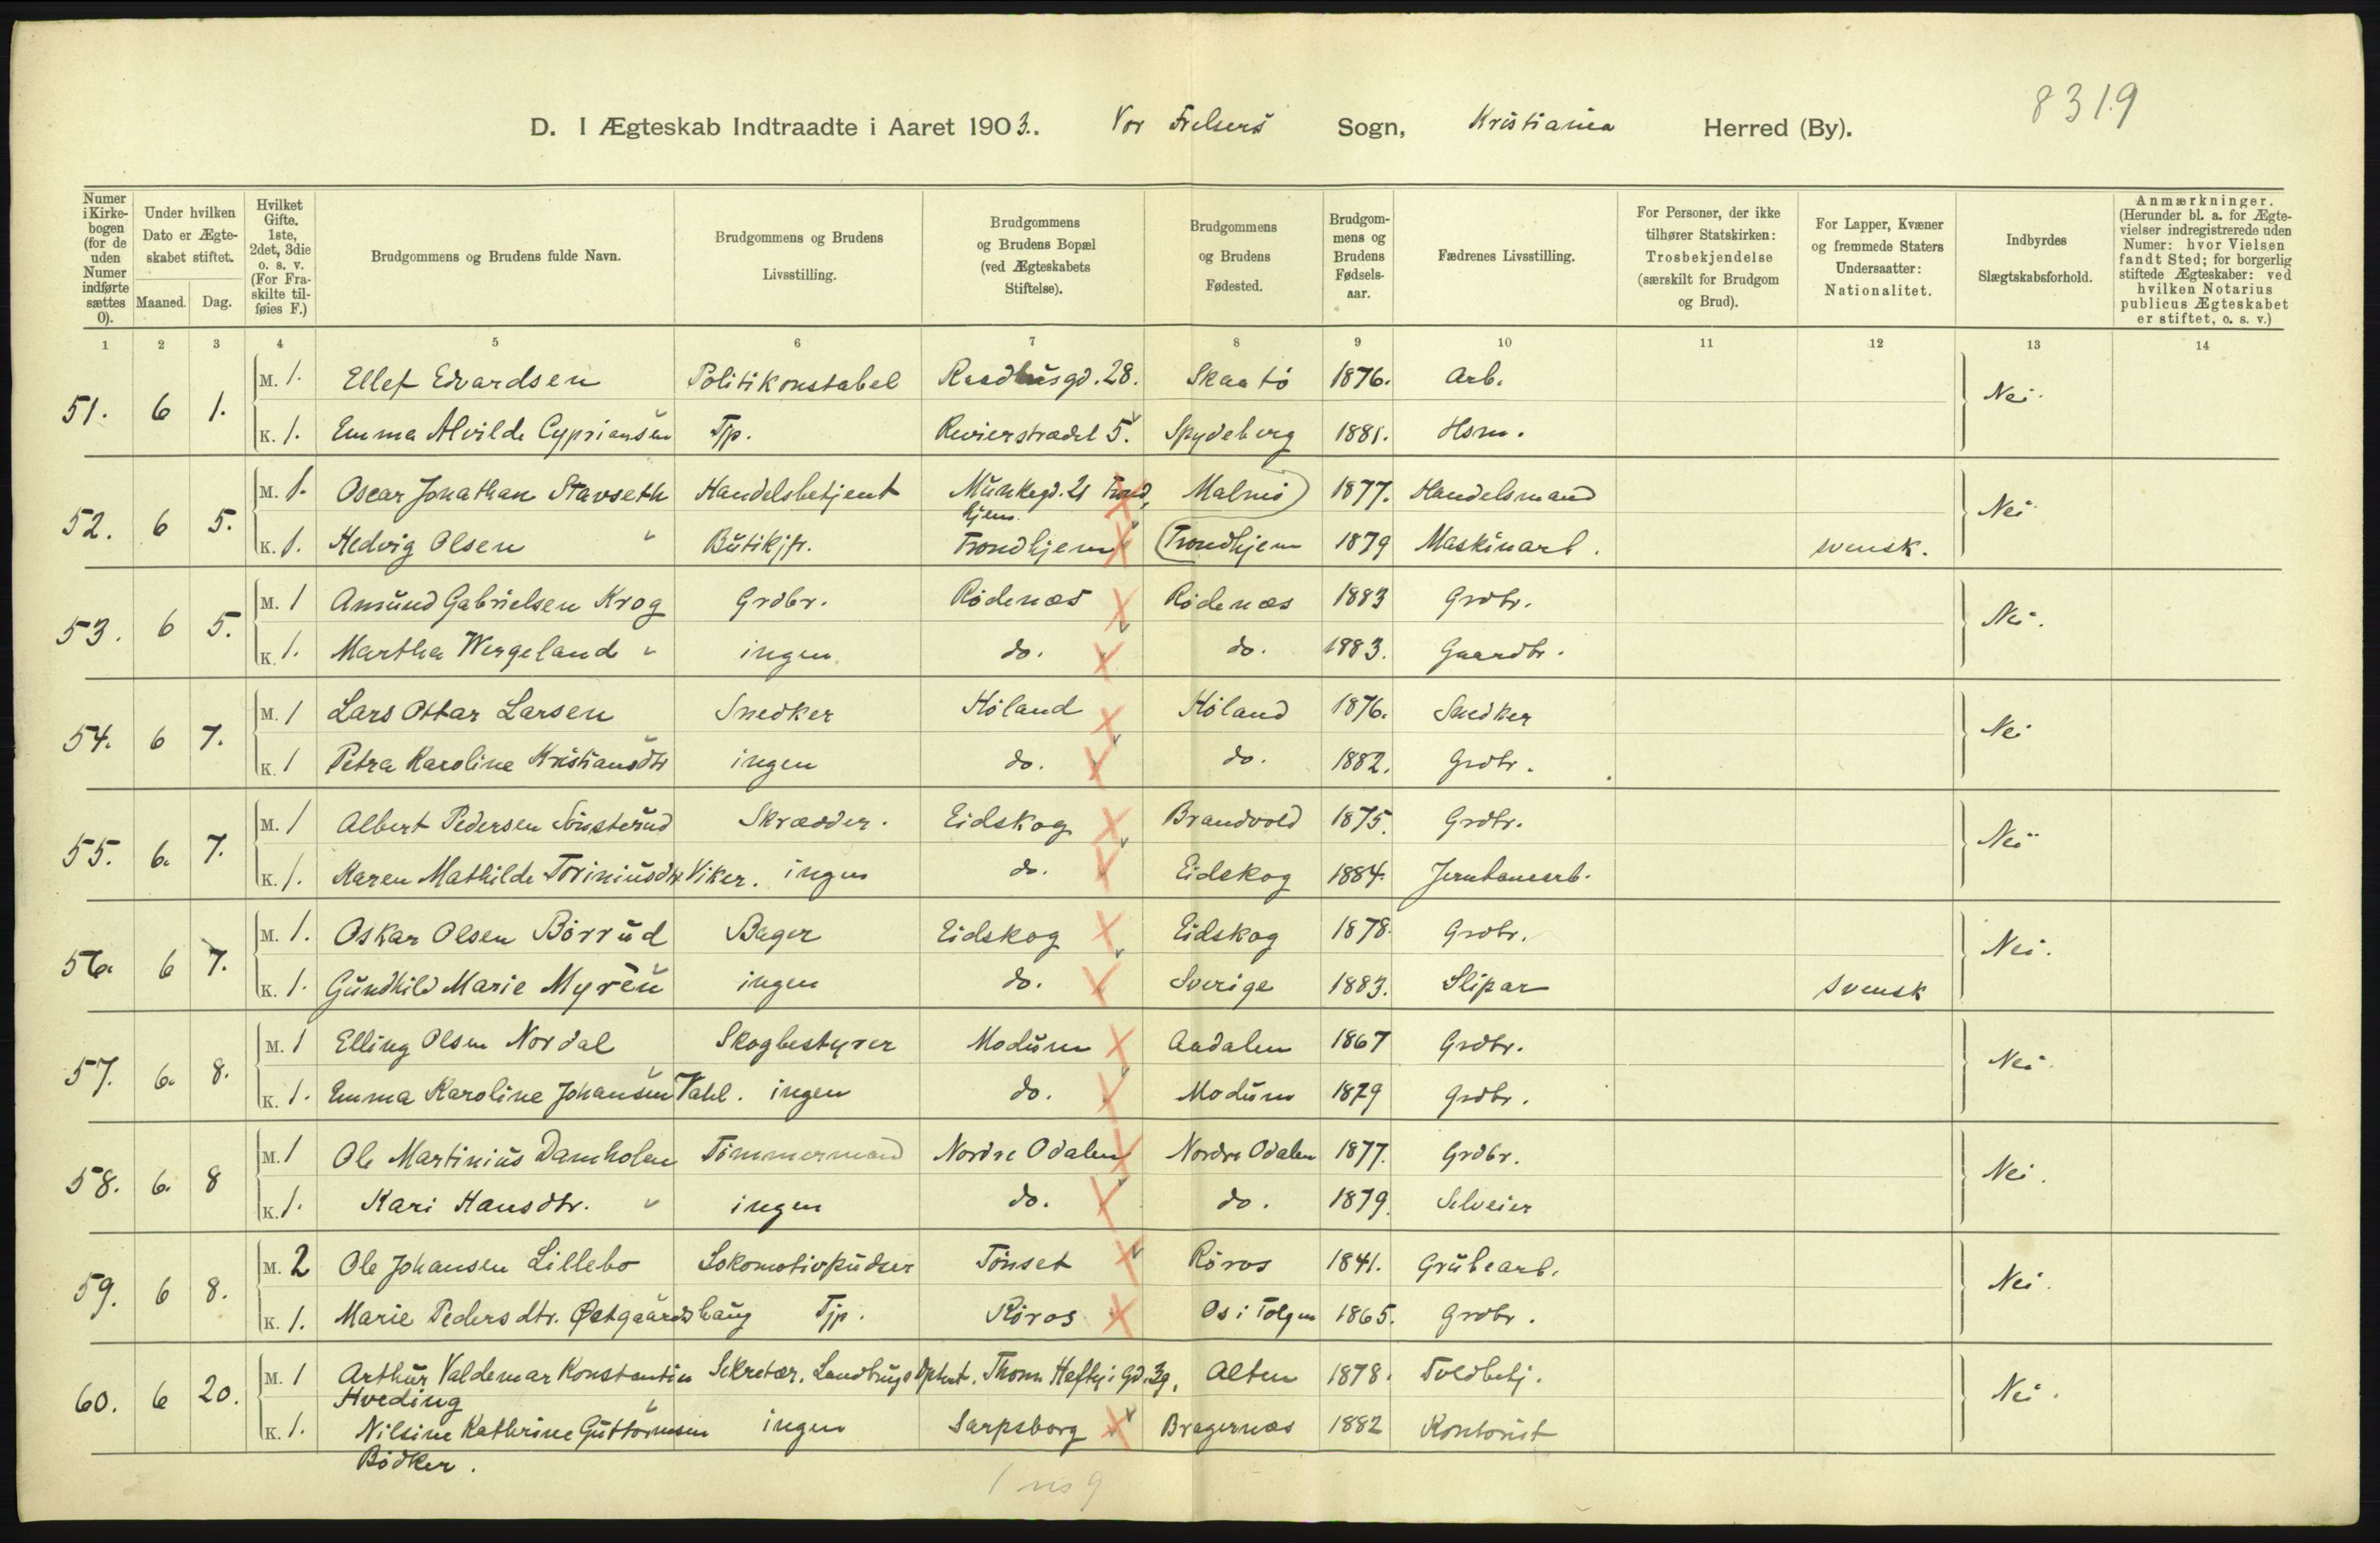 8319
D. I Ægteskab Indtraadte i Aaret 1903. Vor Frelsers Sogn, Kristiania Herred (By).
Numer i Kirke-bogen (for de uden Numer indførte sættes 0).
Under hvilken Dato er Ægte-skabet stiftet.
Maaned. Dag.
Hvilket Gifte. 1ste, 2det, 3die o. s. v. (For Fra-skilte til-føies F.)
Brudgommens og Brudens fulde Navn.
Brudgommens og Brudens Livsstilling.
Brudgommens og Brudens Bopæl (ved Ægteskabets Stiftelse).
Brudgommens og Brudens Fødested.
Brudgom-mens og Brudens Fødsels-aar.
Fædrenes Livsstilling.
For Personer, der ikke tilhører Statskirken: Trosbekjendelse (særskilt for Brudgom og Brud).
For Lapper, Kvæner og fremmede Staters Undersaatter: Nationalitet.
Indbyrdes Slægtskabsforhold.
Anmærkninger. (Herunder bl. a. for Ægte-vielser indregistrerede uden Numer: hvor Vielsen fandt Sted; for borgerlig stiftede Ægteskaber: ved hvilken Notarius publicus Ægteskabet er stiftet, o. s. v.)
1 2 3 4 5 6 7 8 9 10 11 12 13 14
51. 6 1. M. 1. Ellef Edvardsen Politikonstabel Raadhusgd. 28. Skaatö 1876. Arb. Nei.
K. 1. Emma Alvilde Cypriansen Tjp. Revierstrædet 5. Spydeberg 1881. Hsm.
52. 6 5. M. 1. Oscar Jonathan Stavseth Handelsbetjent Munkegd. 21 Trond, Malmö 1877. Handelsmand Nei
hjem.
K. 1. Hedvig Olsen " Butikjfr. Trondhjem Trondhjem 1879 Maskinarb. svensk.
53. 6 5. M. 1 Amund Gabrielsen Krog Grdbr. Rödenæs Rödenæs 1883 Grdbr. Nei.
K. 1. Martha Wergeland " ingen do. do. 1883. Gaardbr.
54. 6 7. M. 1 Lars Ottar Larsen Snedker Höland Höland 1876. Snedker Nei
K. 1 Petra Karoline Kristiansdtr ingen do. do. 1882. Grdbr.
55. 6. 7. M. 1 Albert Pedersen Skrædder. Eidskog Brandvold 1875. Grdbr. Nei
K. 1. Karen Mathilde Toriniusdtr. Viker. ingen do. Eidskog 1884. Jernbanearb.
56. 6 7. M. 1. Oskar Olsen Börrud Bager Eidskog Eidskog 1878. Grdbr. Nei.
K. 1. Gundhild Marie Myrén ingen do. Sverige 1883. Slipar svensk
57. 6. 8. M. 1 Elling Olsen Nordal Skogbestyrer Modum Aadalen 1867 Grdbr. Nei.
K. 1. Emma Karoline Johansen Vahl. ingen do. Modum 1879 Grdbr.
58. 6. 8 M. 1 Ole Martinius Damholen Tömmermand Nordre Odalen Nordre Odalen 1877. Grdbr. Nei.
K. 1. Kari Hansdtr. " ingen do. do. 1879. Selveier
59. 6 8. M. 2 Ole Johansen Lillebo Lokomotivpudser Tönset Röros 1841. Grubearb. Nei.
K. 1. Marie Pedersdtr. Østgaardshaug Tjp. Röros Os i Tolgen 1865. Grdbr.
60. 6 20. M. 1 Arthur Valdemar Konstantin Sekretær. Landbrugsdptmt. Thom. Heftyi Gd. 39. Alten 1878. Toldbetj. Nei.
Hveding
K. 1. Nilsine Kathrine Guttormsen ingen Sarpsborg Bragernæs 1882 Kontorist
Bödker.